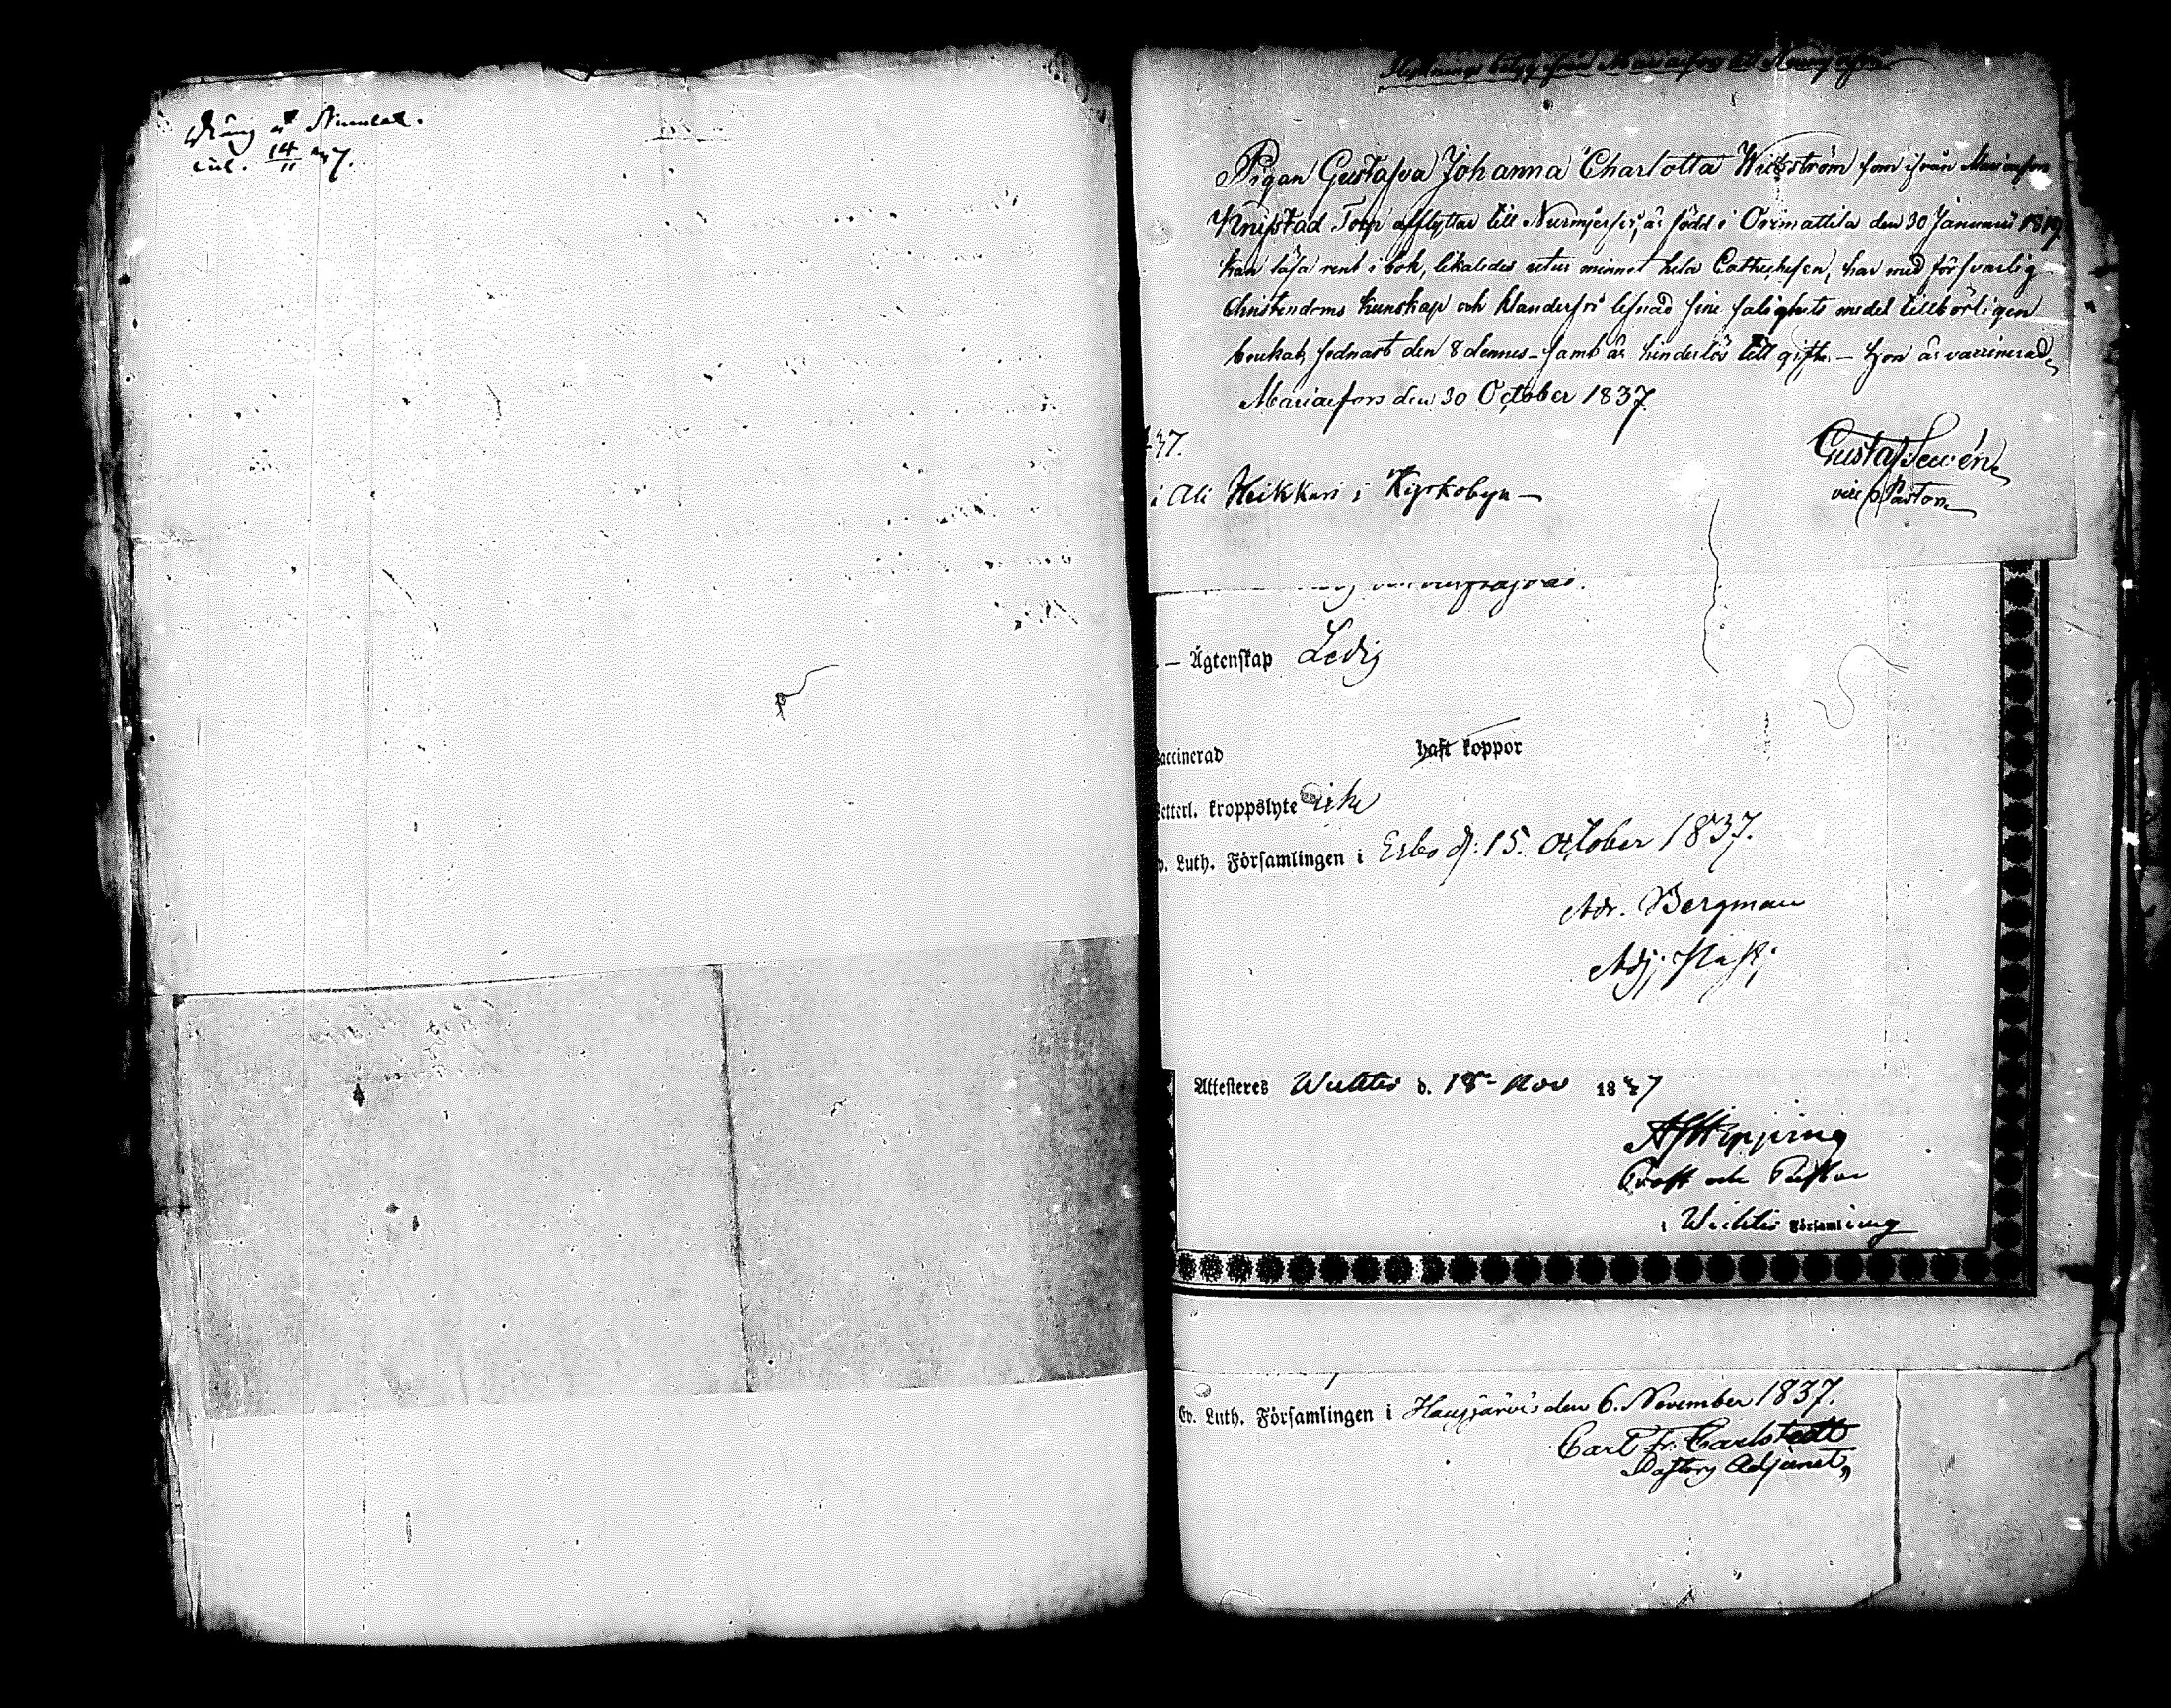 Dräng å Nummela.
inl. 14/11 37.
Flyttnings betyg ifrån Mariaefors till Nurmijerfvi
Pigan Gustafva Johanna Charlotta Wikström som ifrån Mariaefors
Knipstad Torp afflyttar till Nurmijerfvi, är född i Orimattila den 30 Januarii 1819,
kan läsa rent i bok, likaledes utur minnet hela Cathechesen, har med försvarlig
Christendoms kunskap och klanderfri lefnad sine salighets medel tillbörligen
brukat, sednast den 8 dennes – samt är hinderlös till gifte. – Hon är vaccinerad,
Mariaefors den 30 October 1837.
37.
Gustaf
vice Pastor
i Ali Heikkari i Kyrkobyn –
– Ägtenskap Ledig
accinerad haft koppor
etterl. kroppslyte icke
v. Luth. Församlingen i Esbo d: 15. October 1837.
Adr. Bergman
Adj:
Attesteres Wichtis d. 18 Nov 1837
AFHipping
Prost och Pastor
i Wichtis Församling
Ev. Luth. Församlingen i Hausjärvi den 6. November 1837.
Carl Fr. Carlstedt
Pastors Adjunct,